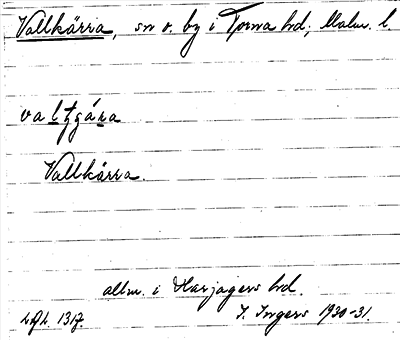 Vallkärra, sn o. by i Torna hd, Malm. l.
Vallkärra.
allm. i Harjagers hd.
I. Ingers 1930-31.